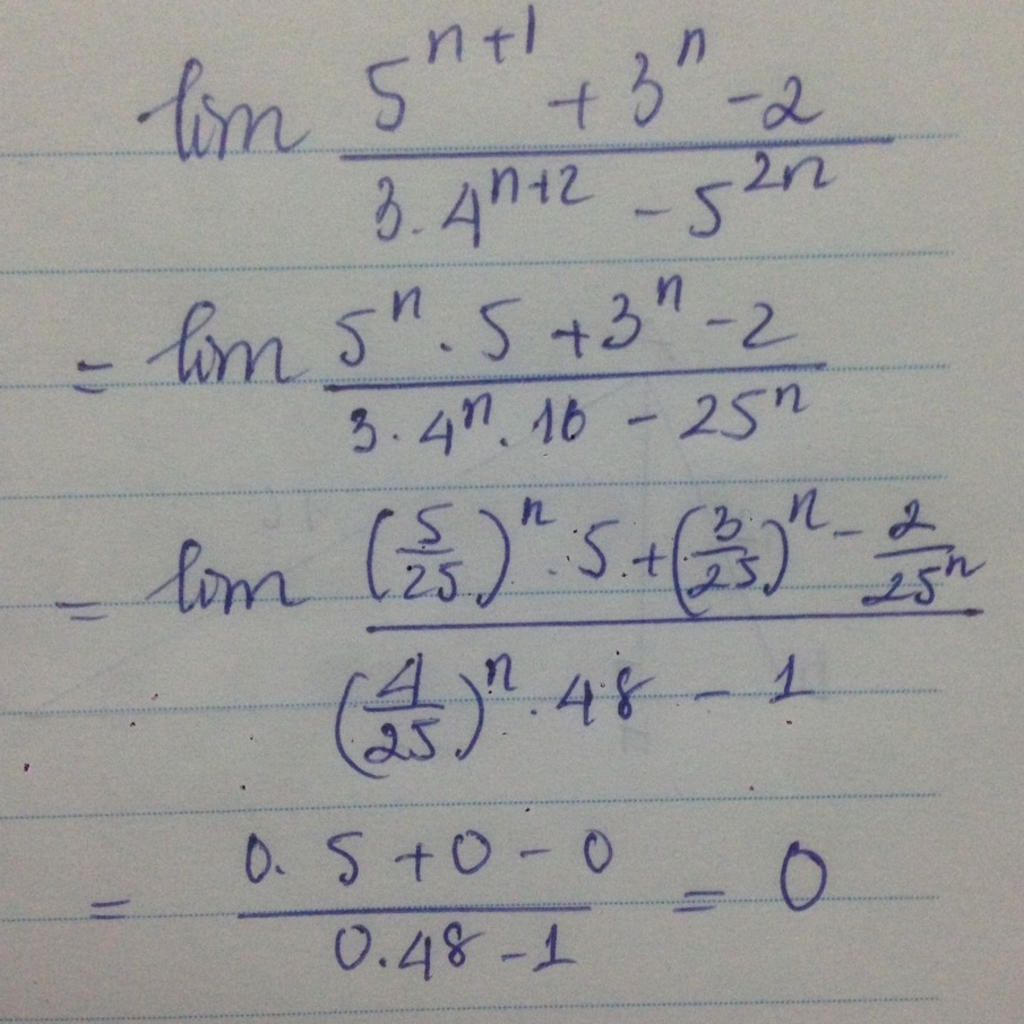 lim (5^{n+1} + 3^n - 2) / (3.4^{n+2} - 5^{2n})
= lim (5^n . 5 + 3^n - 2) / (3.4^n . 16 - 25^n)
= lim ((5/25)^n . 5 + (3/25)^n - 2/25^n) / ((4/25)^n . 48 - 1)
= (0.5 + 0 - 0) / (0.48 - 1) = 0